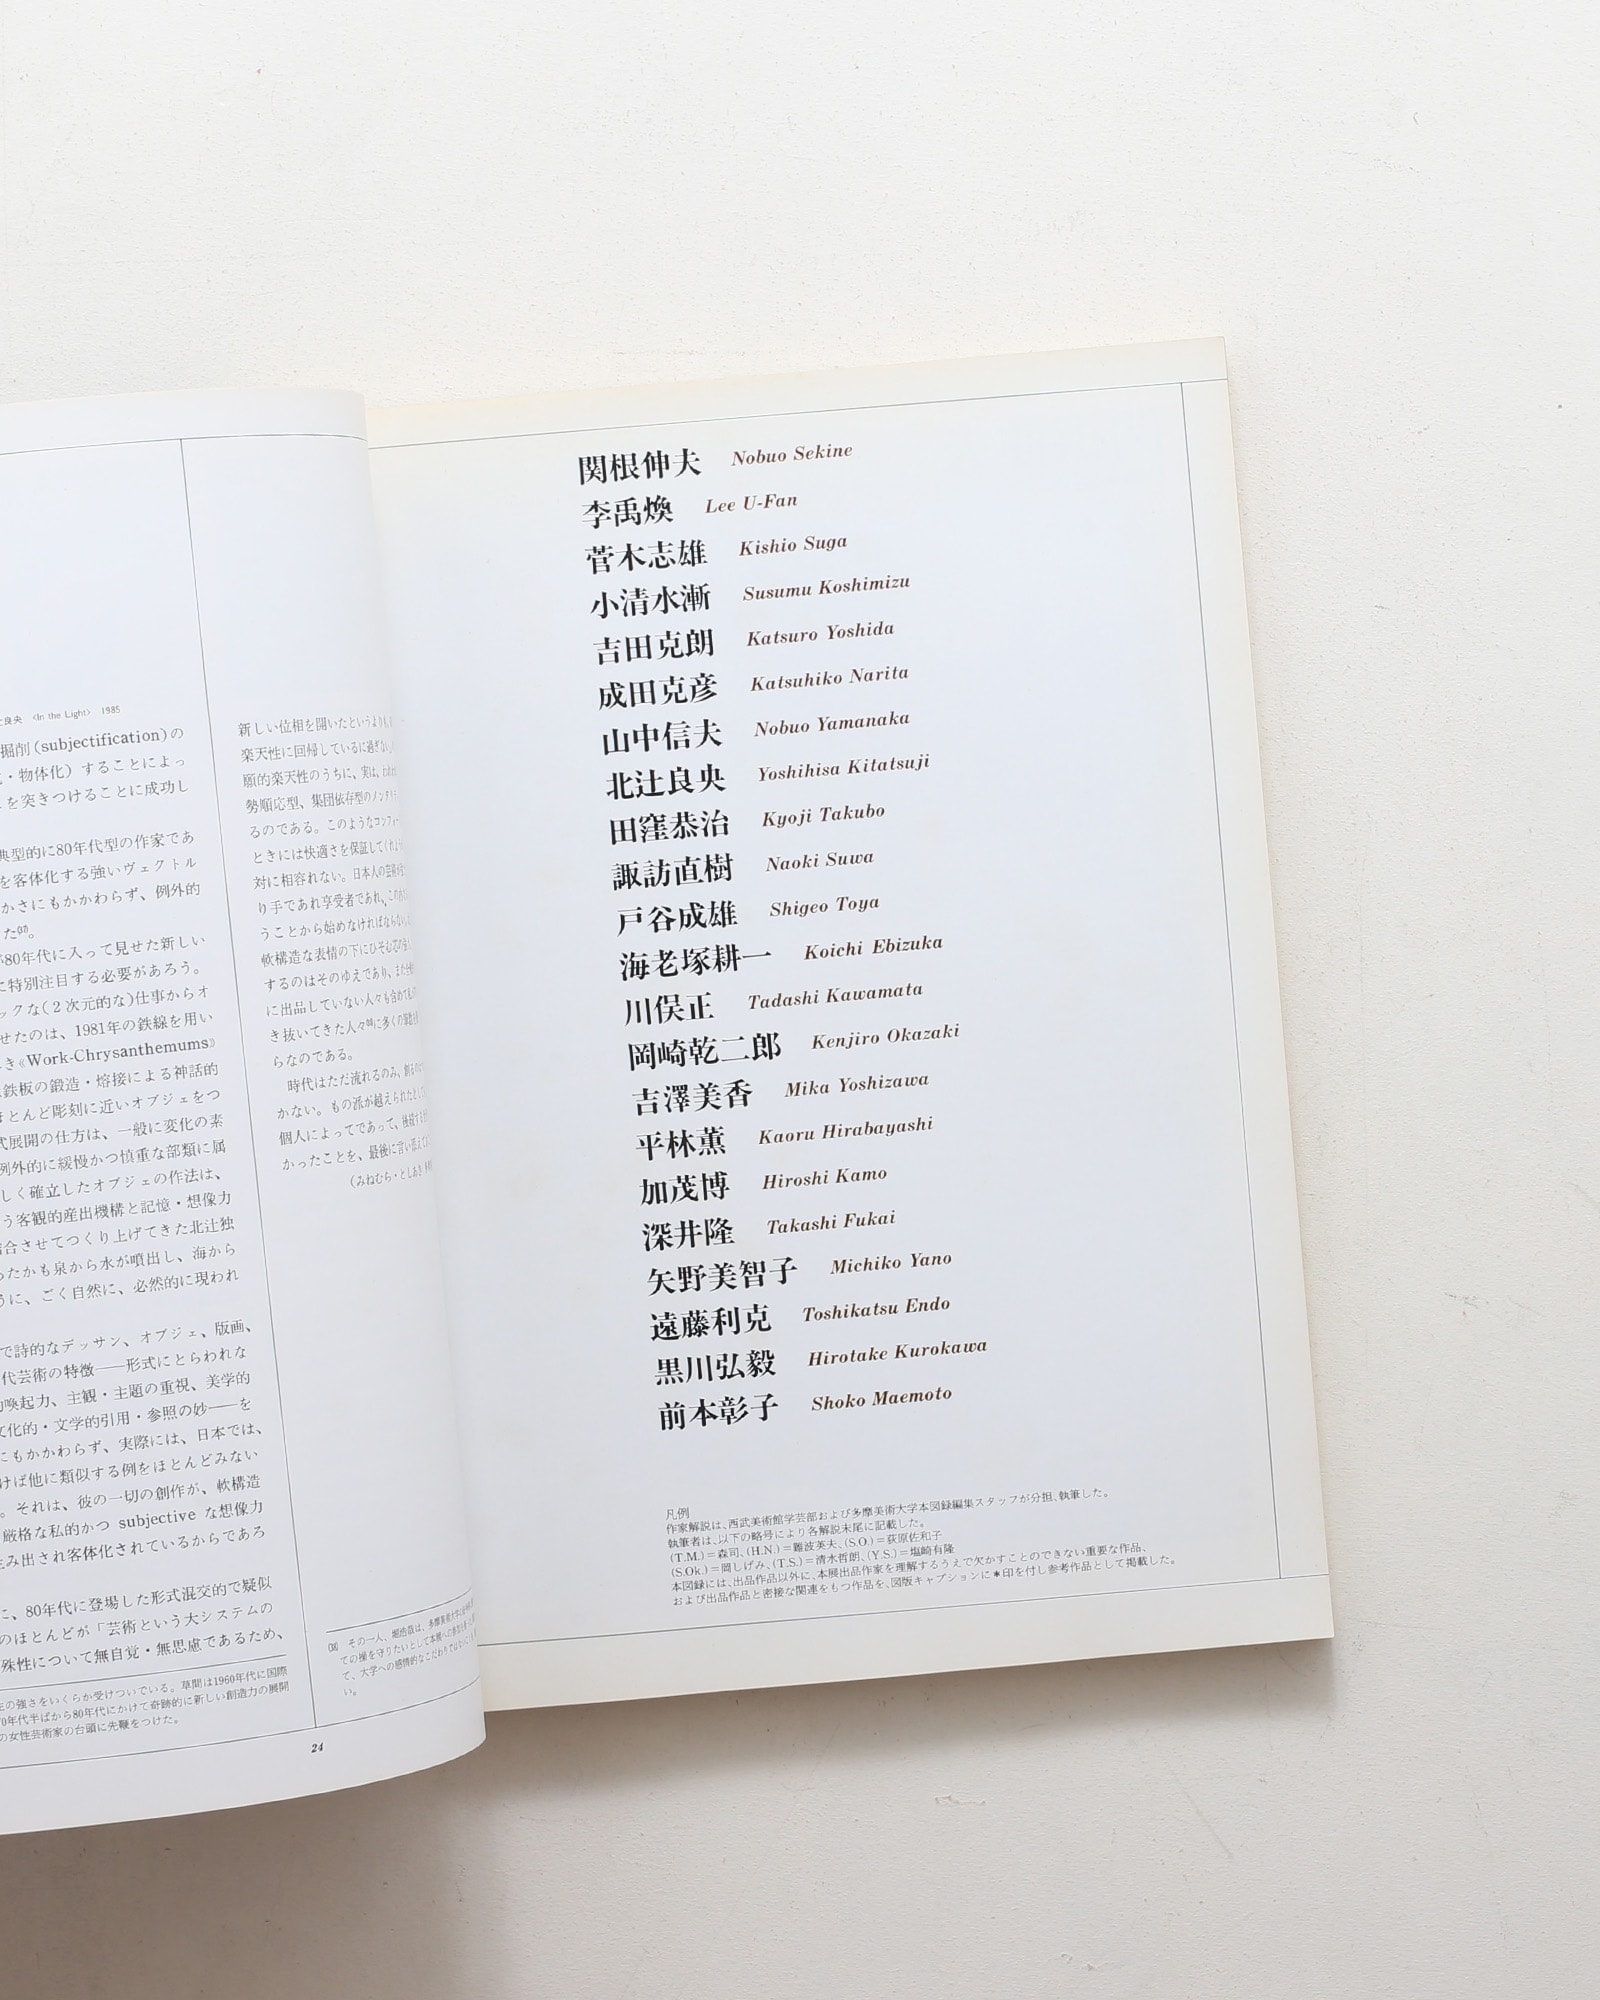 辻良央 〈In the Light〉 1985
掘削(subjectification)の
・物体化)することによっ
を突きつけることに成功し
典型的に80年代型の作家であ
を客体化する強いヴェクトル
かさにもかかわらず、例外的
た
80年代に入って見せた新しい
に特別注目する必要があろう。
ックな(2次元的な)仕事からオ
せたのは、1981年の鉄線を用い
き《Work-Chrysanthemums》
鉄板の鍛造・熔接による神話的
ほとんど彫刻に近いオブジェをつ
式展開の仕方は、一般に変化の素
例外的に緩慢かつ慎重な部類に属
しく確立したオブジェの作法は、
う客観的産出機構と記憶・想像力
結合させてつくり上げてきた北辻独
ったかも泉から水が噴出し、海から
うに、ごく自然に、必然的に現われ
で詩的なデッサン、オブジェ、版画、
代芸術の特徴――形式にとらわれな
的喚起力、主観・主題の重視、美学的
文化的・文学的引用・参照の妙――を
にもかかわらず、実際には、日本では、
けば他に類似する例をほとんどみない
。それは、彼の一切の創作が、軟構造
厳格な私的かつ subjective な想像力
生み出され客体化されているからであろ
に、80年代に登場した形式混交的で疑似
のほとんどが「芸術という大システムの
殊性について無自覚・無思慮であるため、
生の強さをいくらか受けついでいる。草間は1960年代に国際
70年代半ばから80年代にかけて奇跡的に新しい創造力の展開
の女性芸術家の台頭に先鞭をつけた。
新しい位相を開いたというより
楽天性に回帰しているに過ぎない
願的楽天性のうちに、実は、
勢順応型、集団依存型のノンタ
るのである。このようなコンフォー
ときには快適さを保証してくれ
対に相容れない。日本人の芸術
り手であれ享受者であれ、この
うことから始めなければならない
軟構造な表情の下にひそむ
するのはそのゆえであり、また
に出品していない人々も含めて
き抜いてきた人々に多くの
らなのである。
時代はただ流れるのみ、
かない。もの派が越えられたとし
個人によってであって、
かったことを、最後に言い添えて
(みねむら・としあき
その一人、堀浩哉は、多摩美術大学
ての操を守りたいとして本展への参加を
て、大学への感情的なこだわりでは
い。
24
関根伸夫 Nobuo Sekine
李禹煥 Lee U-Fan
菅木志雄 Kishio Suga
小清水漸 Susumu Koshimizu
吉田克朗 Katsuro Yoshida
成田克彦 Katsuhiko Narita
山中信夫 Nobuo Yamanaka
北辻良央 Yoshihisa Kitatsuji
田窪恭治 Kyoji Takubo
諏訪直樹 Naoki Suwa
戸谷成雄 Shigeo Toya
海老塚耕一 Koichi Ebizuka
川俣正 Tadashi Kawamata
岡崎乾二郎 Kenjiro Okazaki
吉澤美香 Mika Yoshizawa
平林薫 Kaoru Hirabayashi
加茂博 Hiroshi Kamo
深井隆 Takashi Fukai
矢野美智子 Michiko Yano
遠藤利克 Toshikatsu Endo
黒川弘毅 Hirotake Kurokawa
前本彰子 Shoko Maemoto
凡例
作家解説は、西武美術館学芸部および多摩美術大学本図録編集スタッフが分担、執筆した。
執筆者は、以下の略号により各解説末尾に記載した。
(T.M.)=森司、(H.N.)=難波英夫、(S.O.)=荻原佐和子
(S.Ok.)=岡しげみ、(T.S.)=清水哲朗、(Y.S.)=塩崎有隆
本図録には、出品作品以外に、本展出品作家を理解するうえで欠かすことのできない重要な作品、
および出品作品と密接な関連をもつ作品を、図版キャプションに＊印を付し参考作品として掲載した。